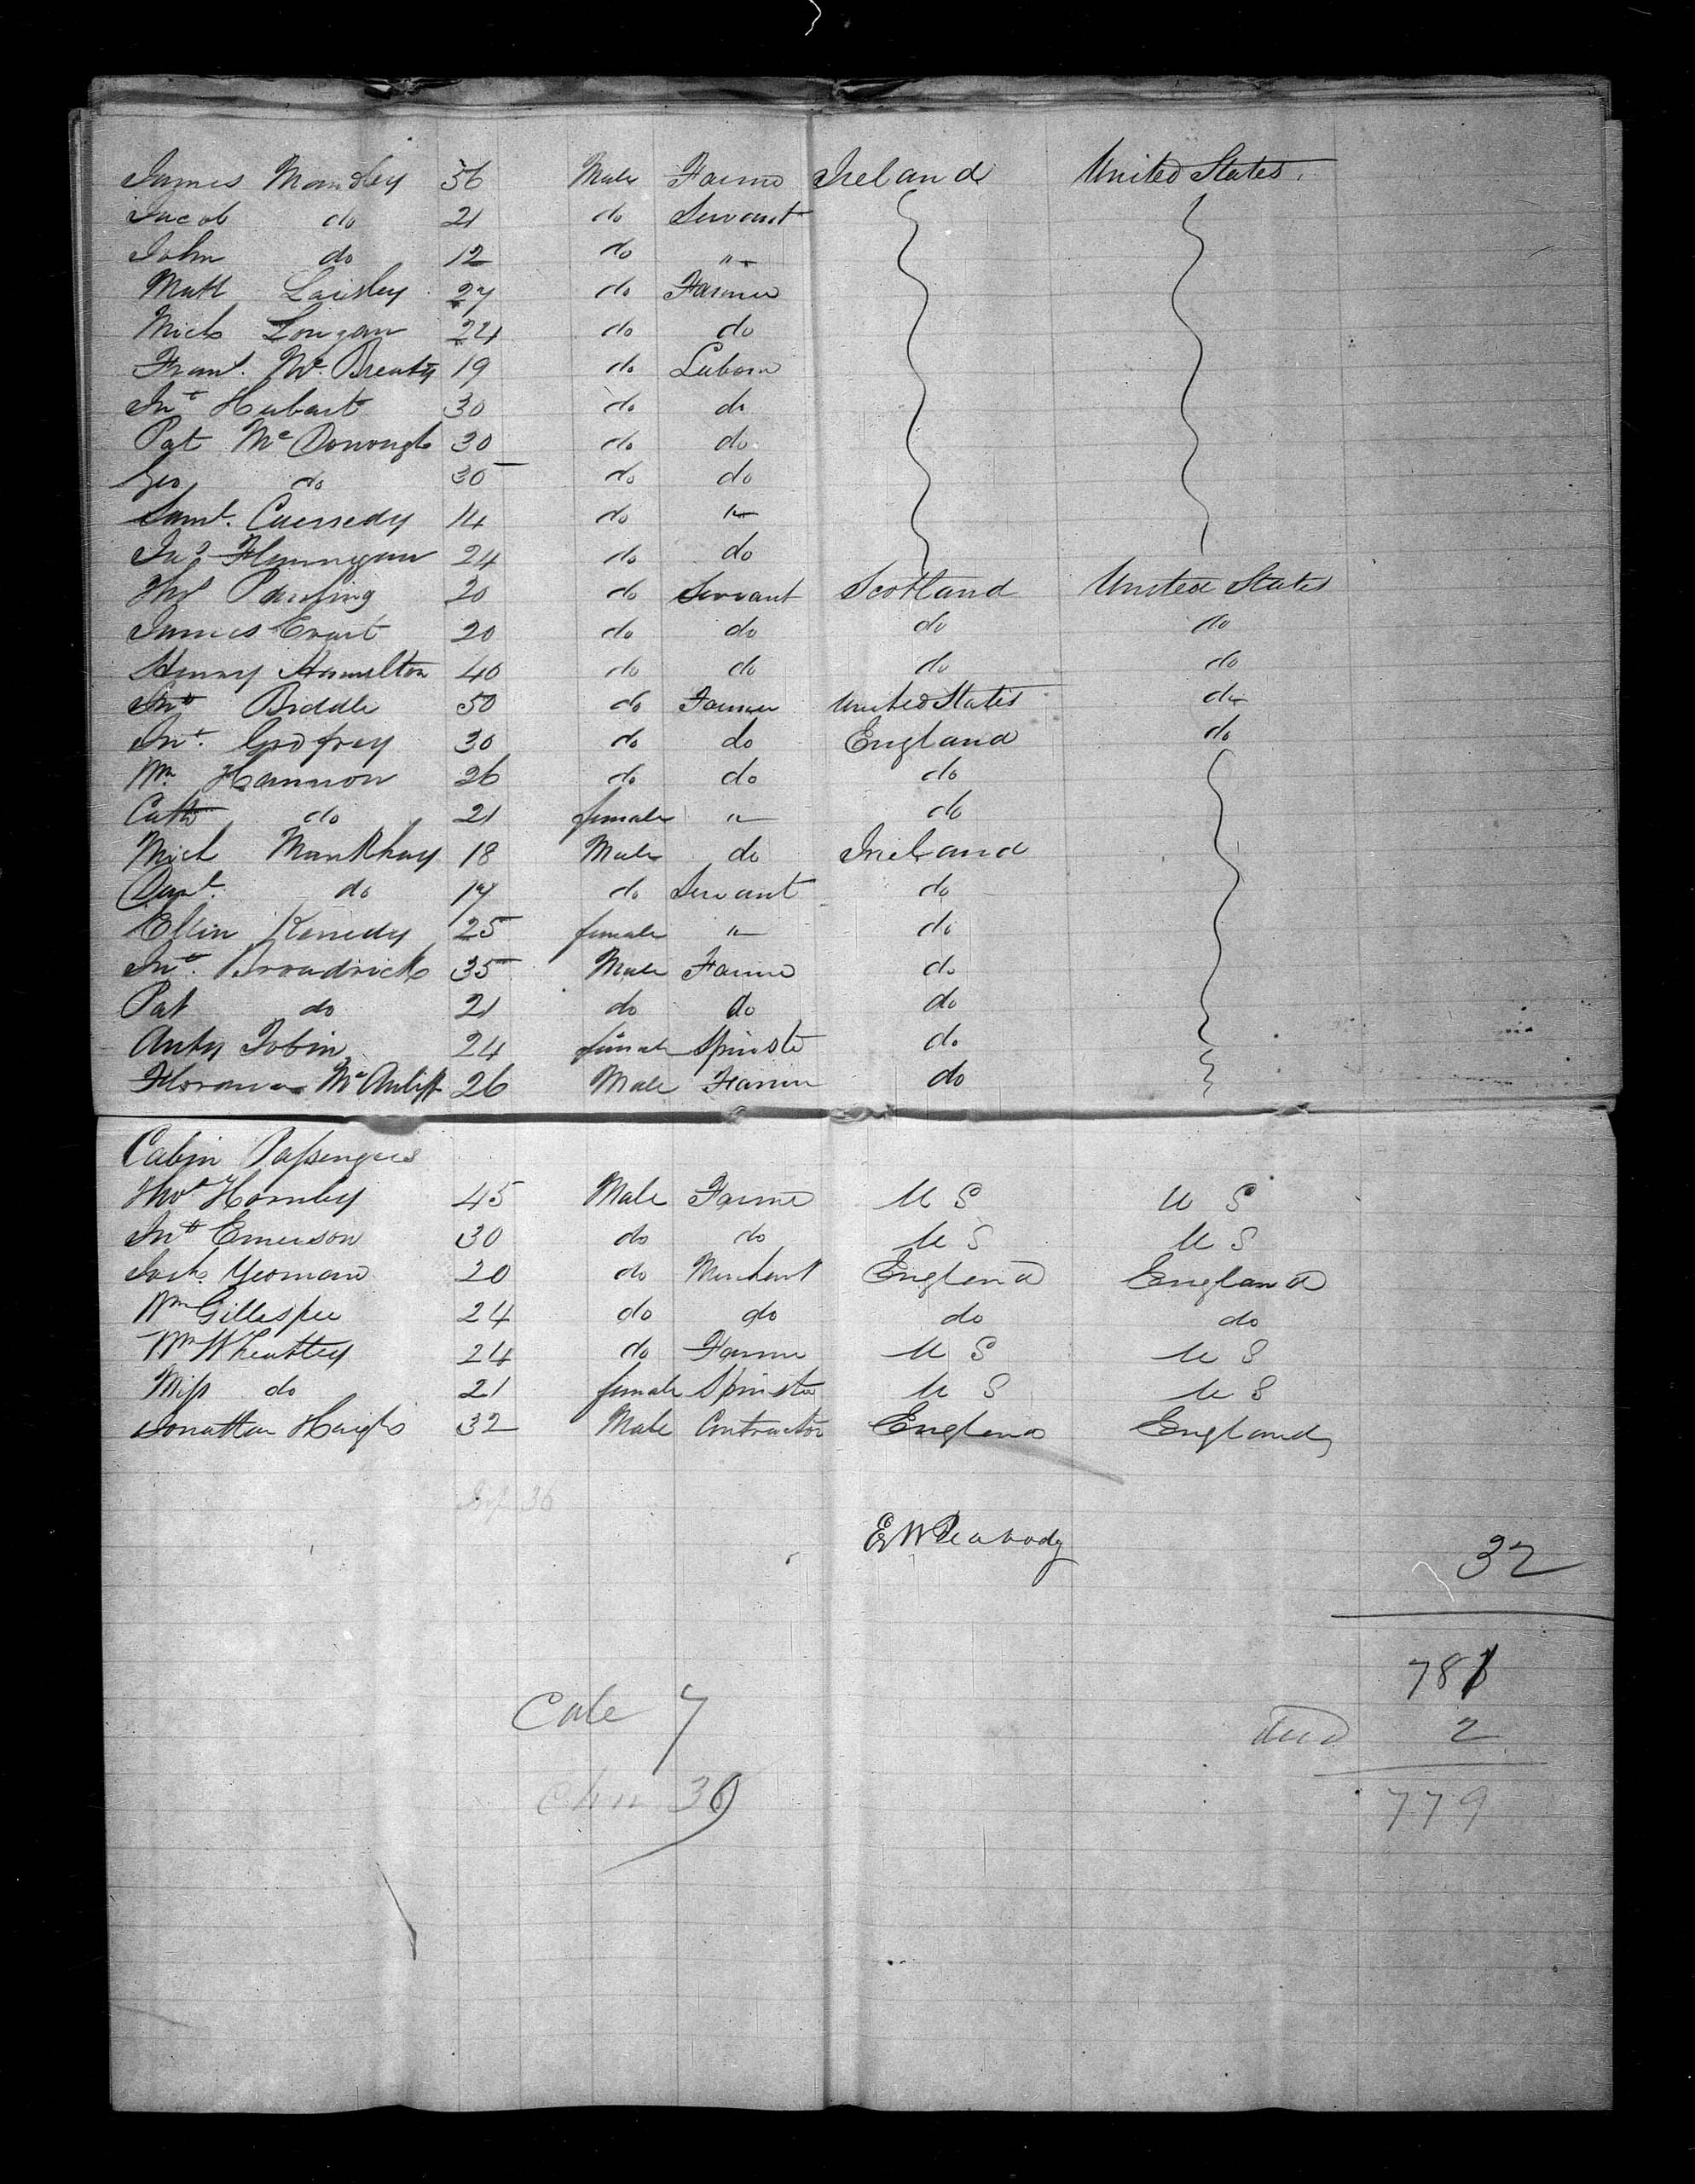 James Mandley 56 Male Farmer Ireland United States
Jacob do 21 do Servant
John do 12 do "
Matt Laisley 27 do Farmer
Mich Lougan 24 do do
Fran. Mc. Brearty 19 do Labour
Jno Hubart 30 do do
Pat McDonough 30 do do
Geo do 35 do do
Saml. Cassedy 14 do "
Jno Flannigan 24 do do
Thos 20 do Servant Scotland United States
James Evart 20 do do do do
Henry Hamilton 40 do do do do
Jno Biddle 50 do Farmer United States do
Jno. Godfrey 30 do do England do
Wm. Hannon 26 do do do
Cath do 21 female " do
Mich 18 Male do Ireland
Danl. do 17 do Servant do
Ellin Kenedy 25 female " do
Jno. Broadrick 35 Male Farmer do
Pat do 21 do do do
Anty Tobin 24 female Spinster do
Florance McAuliff 26 Male Farmer do
Cabin Passengers
Thos Hornby 45 Male Farmer U S U S
Jno Emerson 30 do do U S U S
Yeoman 20 do Merchant England England
Wm Gillespie 24 do do do do
Wm Wheatley 24 do Farmer U S U S
Miss do 21 female Spinster U S U S
Jonathan Haigh 32 Male Contractor England England
36
E W Peabody
32
781
Cab 7
died 2
36
779